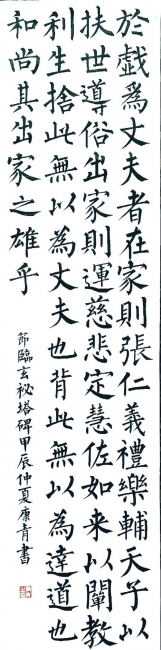 於戲為丈夫者在家則張仁義禮樂輔天子以
扶世導俗出家則運慈悲定慧佐如来以闡教
利生捨此無以為丈夫也背此無以為達道也
和尚其出家之雄乎
節臨玄秘塔碑甲辰仲夏康青書